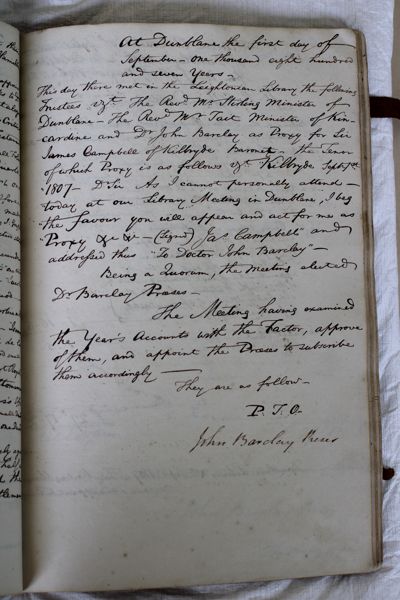 At Dunblane the first day of
September one thousand eight hundred
and seven Years -
This day there met in the Leightonian Library the following
Trustees vizt. The Revd. Mr. Stirling Minister of
Dunblane - The Revd. Mr. Tait Minister of Kin-
cardine and Dr. John Barclay as Proxy for Sir
James Campbell of Kilbryde Baronet - the Tenor
of which Proxy is as follows vizt. Kilbryde Septr.
1807 - Dr. Sir As I cannot personally attend -
today at our Library Meeting in Dunblane, I beg
"the favour you will appear and act for me as
"Proxy &c &c - (signd) Jas Campbell" and
addressed thus "To Doctor John Barclay" -
Being a Quorum, the Meeting elected
Dr. Barclay Præses -
The Meeting having examined
the Year's Accounts with the Factor, approve
of them, and appoint the Præses to subscribe
them accordingly -
They are as follow -
P. T. O.
John Barclay Preses